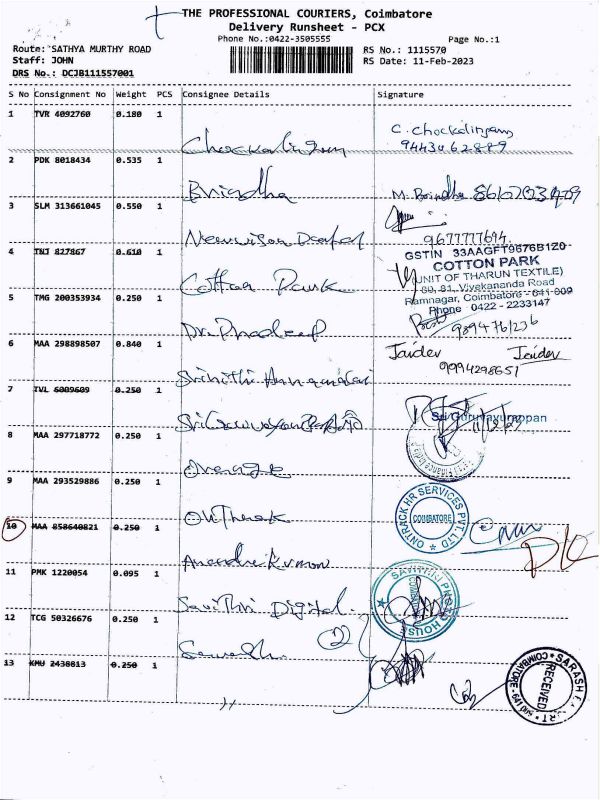 THE PROFESSIONAL COURIERS, Coimbatore
Delivery Runsheet - PCX
Phone No.:0422-3505555
Page No.:1
Route: SATHYA MURTHY ROAD
RS No.: 1115570
Staff: JOHN
RS Date: 11-Feb-2023
DRS No.: DCJB111557001
S No Consignment No Weight PCS Consignee Details Signature
1 TVR 4092760 0.180 1
Chockalingam C. Chockalingam
9443062889
2 PDK 8018434 0.535 1
Brindha M. Brindha
3 SLM 313661045 0.550 1
9677777694
4 TNJ 827867 0.610 1
Cotton Park
GSTIN 33AAGFT9676B1Z0
COTTON PARK
(UNIT OF THARUN TEXTILE)
80, 81, Vivekananda Road
Ramnagar, Coimbatore - 641 009
Phone 0422 - 2233147
5 TMG 200353934 0.250 1
Dr. Pradeep
6 MAA 298898507 0.840 1
Jaidev Jaidev
9994298651
7 TVL 6009609 0.250 1
Sri Guruvayurappan
8 MAA 297718772 0.250 1
9 MAA 293529886 0.250 1
ONTRACK HR SERVICES PVT. LTD
COIMBATORE
10 MAA 858640821 0.250 1
11 PMK 1220054 0.095 1
Savithri Digital
SAVITHRI PHOTO HOUSE
12 TCG 50326676 0.250 1
22
13 KMU 2438813 0.250 1
RECEIVED
COIMBATORE - 641 009